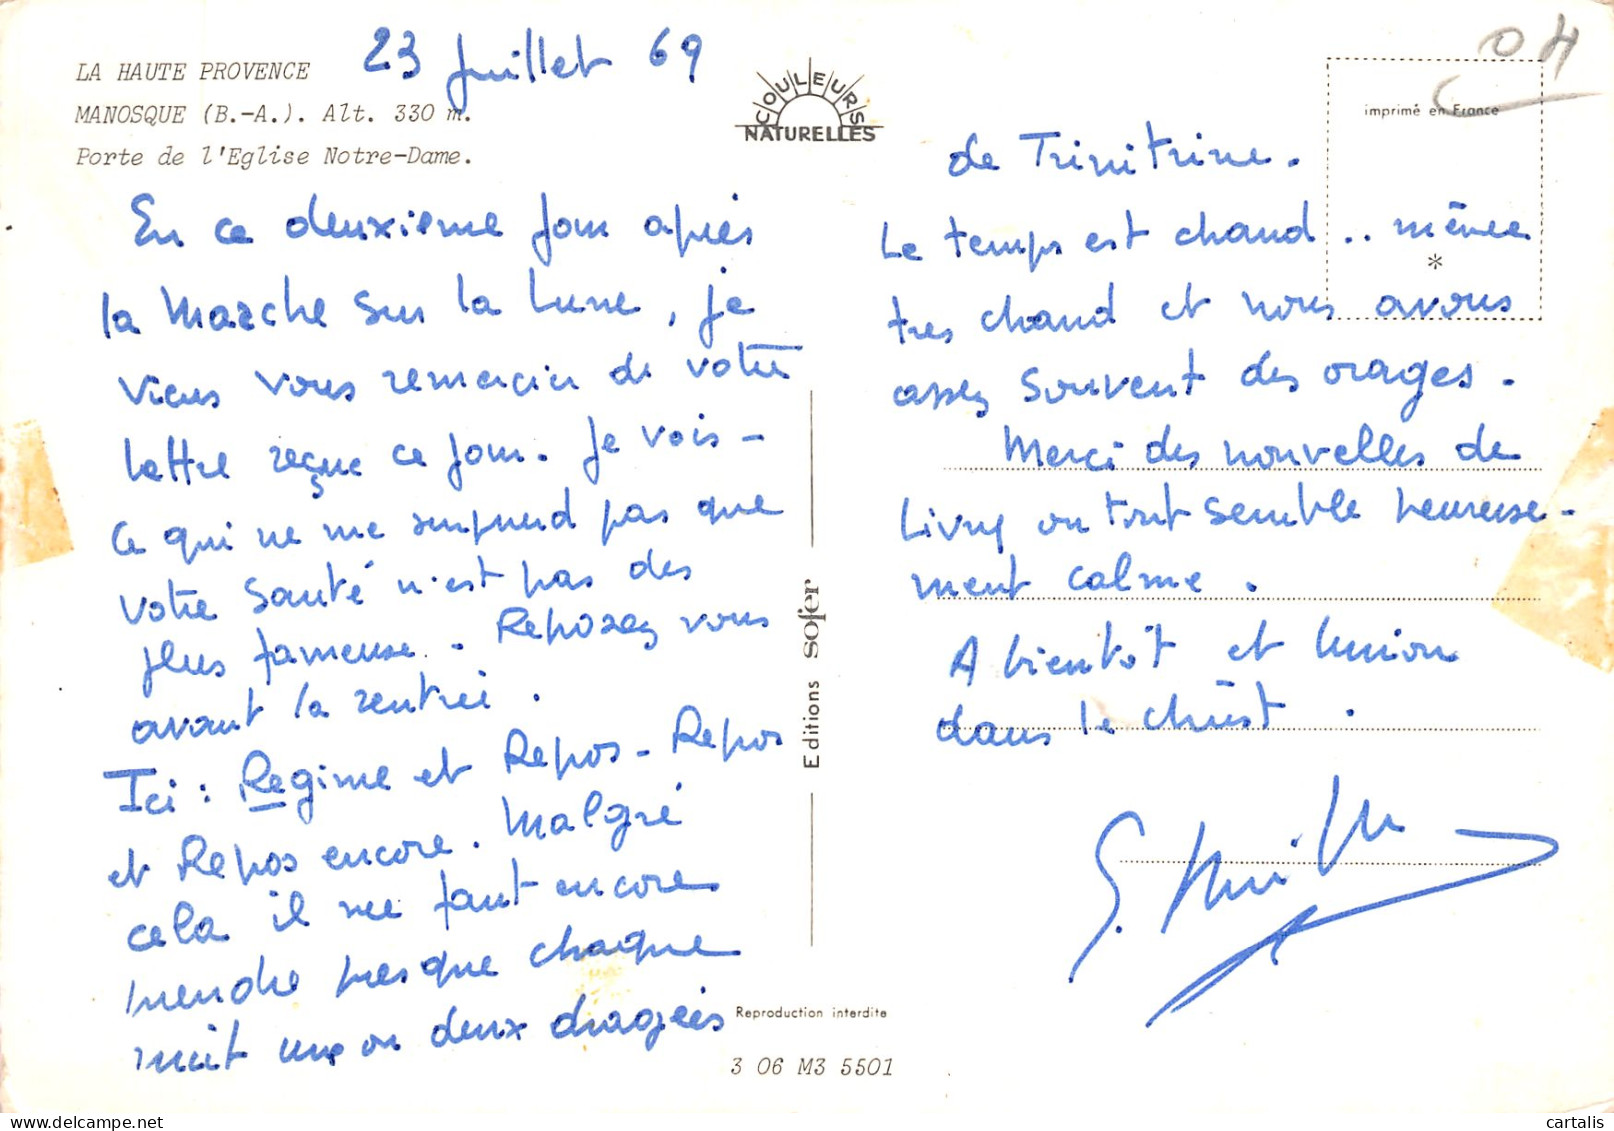 LA HAUTE PROVENCE
MANOSQUE (B.-A.). Alt. 330 m.
Porte de l'Eglise Notre-Dame.
23 Juillet 69
COULEURS
NATURELLES
imprimé en France
*
En ce deuxième jour après
la Marche sur la Lune, je
viens vous remercier de votre
lettre reçue ce jour. Je vois -
ce qui ne me surprend pas que
votre santé n'est pas des
plus fameuse. Reposez vous
avant la rentrée.
Ici : Regime et Repos - Repos
et Repos encore. Malgré
cela il me faut encore
prendre presque chaque
nuit une ou deux dragées
de Trinitrine.
Le temps est chaud .. même
très chaud et nous avons
assez souvent des orages.
Merci des nouvelles de
Livry où tout semble heureuse-
ment calme.
A bientôt et Union
dans le Christ.
Editions sofer
Reproduction interdite
3 06 M3 5501
cartalis